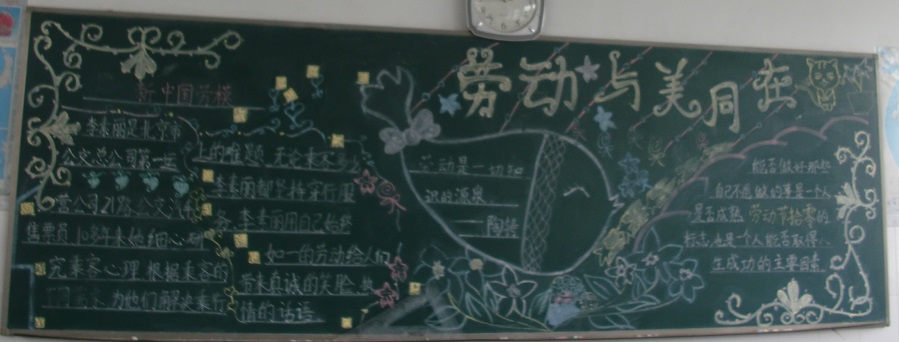 劳动与美同在
新中国劳模
李素丽是北京市
公交总公司第一运
营公司21路公交汽车
售票员10多年来她细心研
究乘客心理根据乘客的
为他们解决乘行
上的难题无论乘客多少
李素丽都坚持穿行服
务李素丽用自己始终
如一的劳动给人们
带来真诚的笑脸热
情的话语
劳动是一切知
识的源泉
——陶铸
能否做好那些
自己不愿做的事是一个人
是否成熟
的
标志也是一个人能否取得人
生成功的主要因素